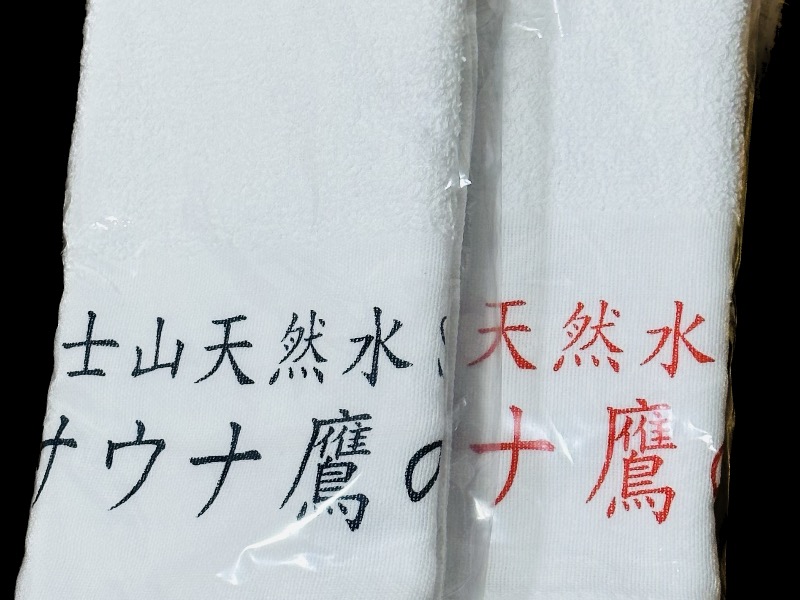 士山天然水
サウナ鷹の
天然水
ナ鷹